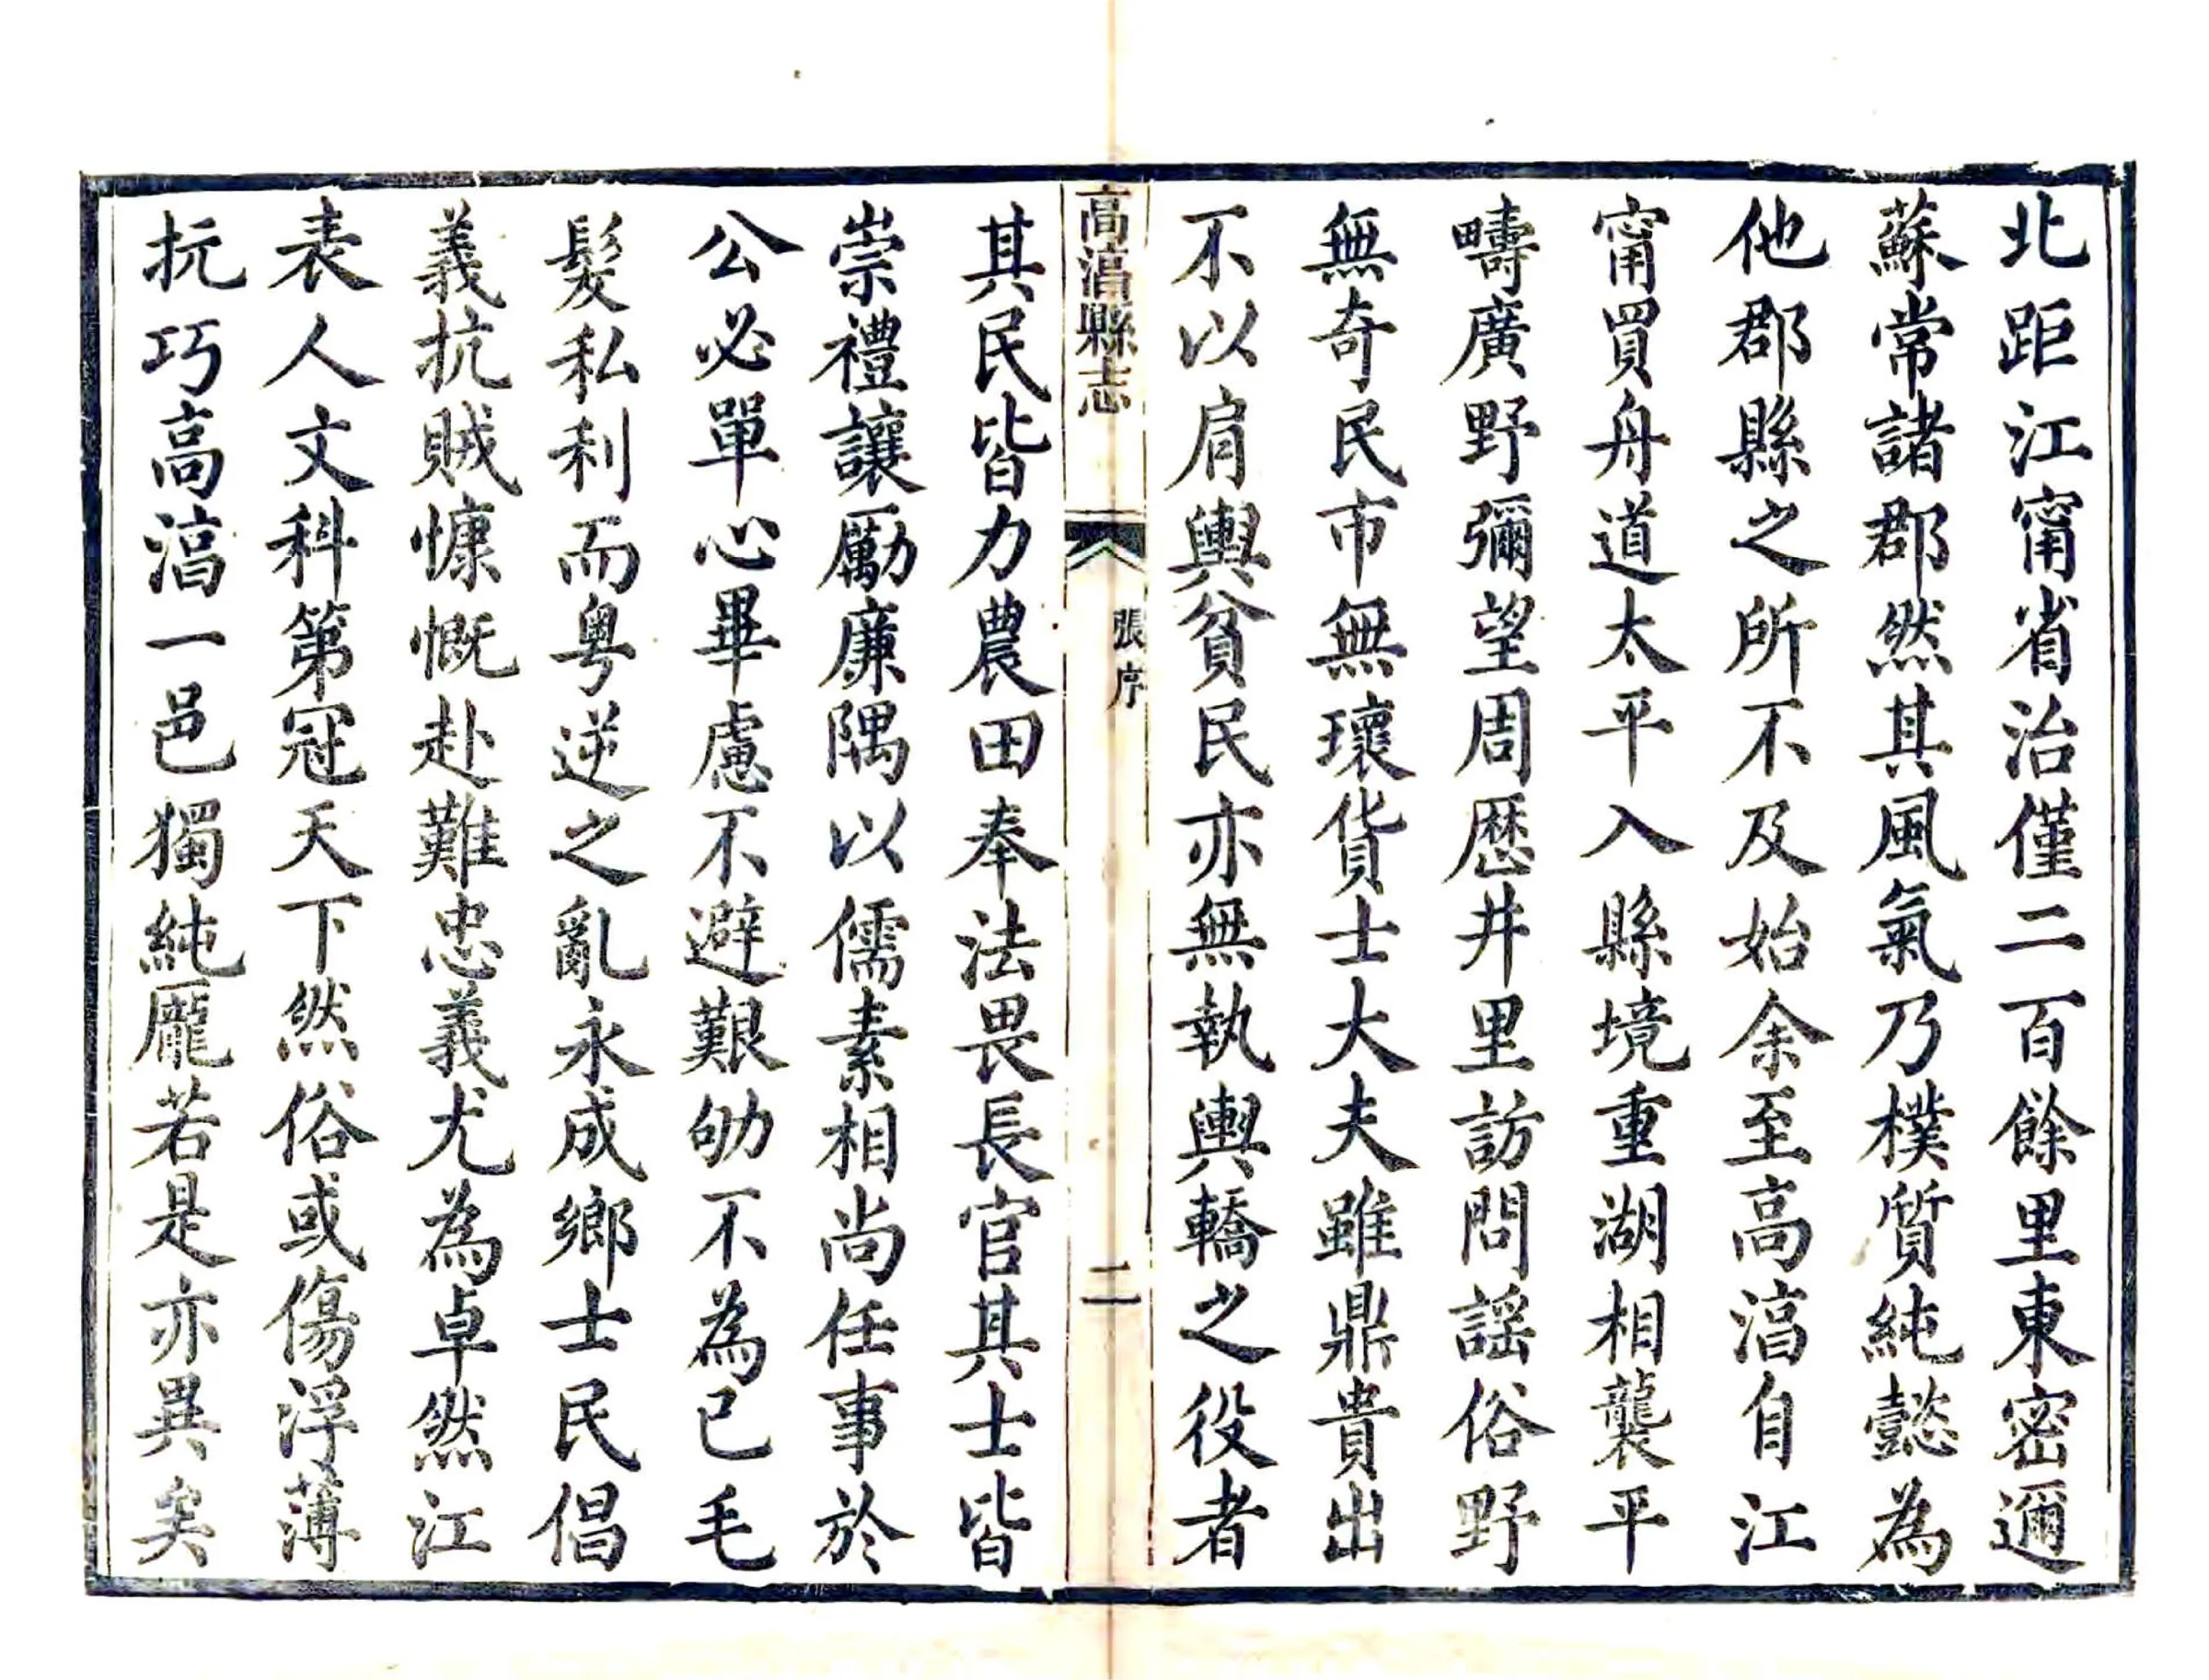 北距江甯省治僅二百餘里東密邇
蘇常諸郡然其風氣乃樸質純懿為
他郡縣之所不及始余至高淳自江
甯買舟道太平入縣境重湖相襲平
疇廣野彌望周歷井里訪問謡俗野
無奇民市無瓌貨士大夫雖鼎貴出
不以肩輿貧民亦無執輿轎之役者
高淳縣志
張序
二
其民皆力農田奉法畏長官其士皆
崇禮讓勵廉隅以儒素相尚任事於
公必單心畢慮不避艱劬不為已毛
髮私利而粵逆之亂永成鄉士民倡
義抗賊慷慨赴難忠義尤為卓然江
表人文科第冠天下然俗或傷浮薄
抏巧高淳一邑獨純龐若是亦異矣